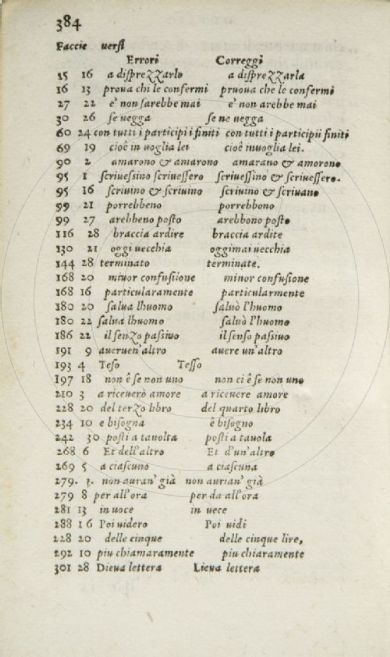 384
Faccie uersi
Errori Correggi
15 16 a disprezzarlo a disprezzarla
16 13 proua chi le confermi pruoua che le confermi
27 22 e' non sarebbe mai e' non arebbe mai
30 26 se uegga se ne uegga
60 24 con tutti i participii finiti con tutti i participii finiti
69 19 cioè in uoglia lei cioè inuoglia lei.
90 2 amarono & amarono amarano & amorono
95 1 scriuessino scriuessero scriuessino & scriuessero.
95 16 scriuino & scriuino scriuino & scriuano
99 21 porrebbeno porrebbono
99 27 arebbeno posto arebbono posto
116 28 braccia ardire braccia ardite
130 21 oggi uecchia oggimai uecchia
144 28 terminato terminate.
168 20 minor confusione minor confusione
168 16 particularamente particularmente
180 20 salua lhuomo saluò l'huomo
180 22 salua lhuomo saluò l'huomo
186 22 il senzo passiuo il senso passiuo
191 9 aueruen'altro auere un'altro
193 4 Teso Tesso
197 18 non è se non uno non ci è se non uno
210 3 a riceuerò amore a riceuere amore
228 20 del terzo libro del quarto libro
234 10 e bisogna è bisogno
242 30 posti a tauolta posti a tauola
268 6 Et dell'altro Et d'un'altro
269 5 a ciascuno a ciascuna
279. 3. non auran' già non aurian' già
279 8 per all'ora per da all'ora
281 13 in uoce in uece
288 16 Poi uidero Poi uidi
228 20 delle cinque delle cinque lire,
292 10 piu chiamaramente piu chiaramente
301 28 Dieua lettera Lieua lettera